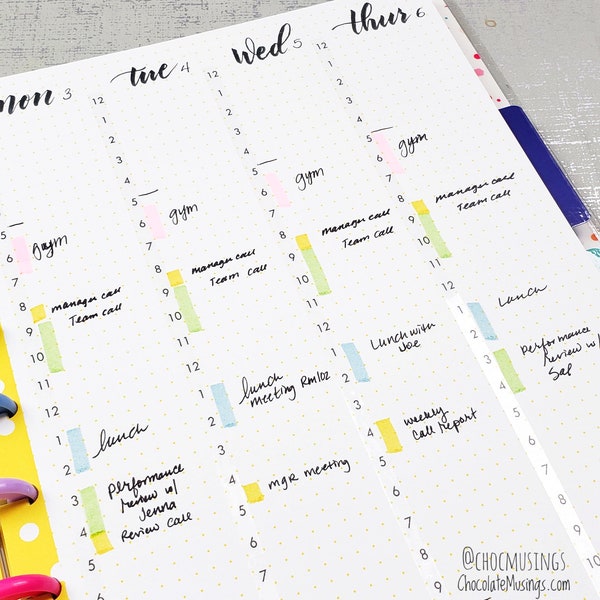 mon 3
5
6 gym
7
8 manager call
9 Team call
10
11
12
1 lunch
2
3 performance
review w/
Jenna
4 Review call
5
tue 4
12
1
2
3
4
5
6 gym
7
8 manager call
9 Team call
10
11
12
1 lunch
2 meeting Rm102
3
4 mgr meeting
5
wed 5
12
1
2
3
4
5
6 gym
7
8 manager call
9 Team call
10
11
12
1 Lunch with
Joe
2
3
4 weekly
call report
5
9
thur 6
12
1
2
3
4
5
6 gym
7
8 manager call
9 Team call
10
11
12
1 Lunch
2
3 performance
review w/
4 Sal
5
6
7
8
9
10
11
@CHOCMUSINGS
CHOCOLATEMUSINGS.com